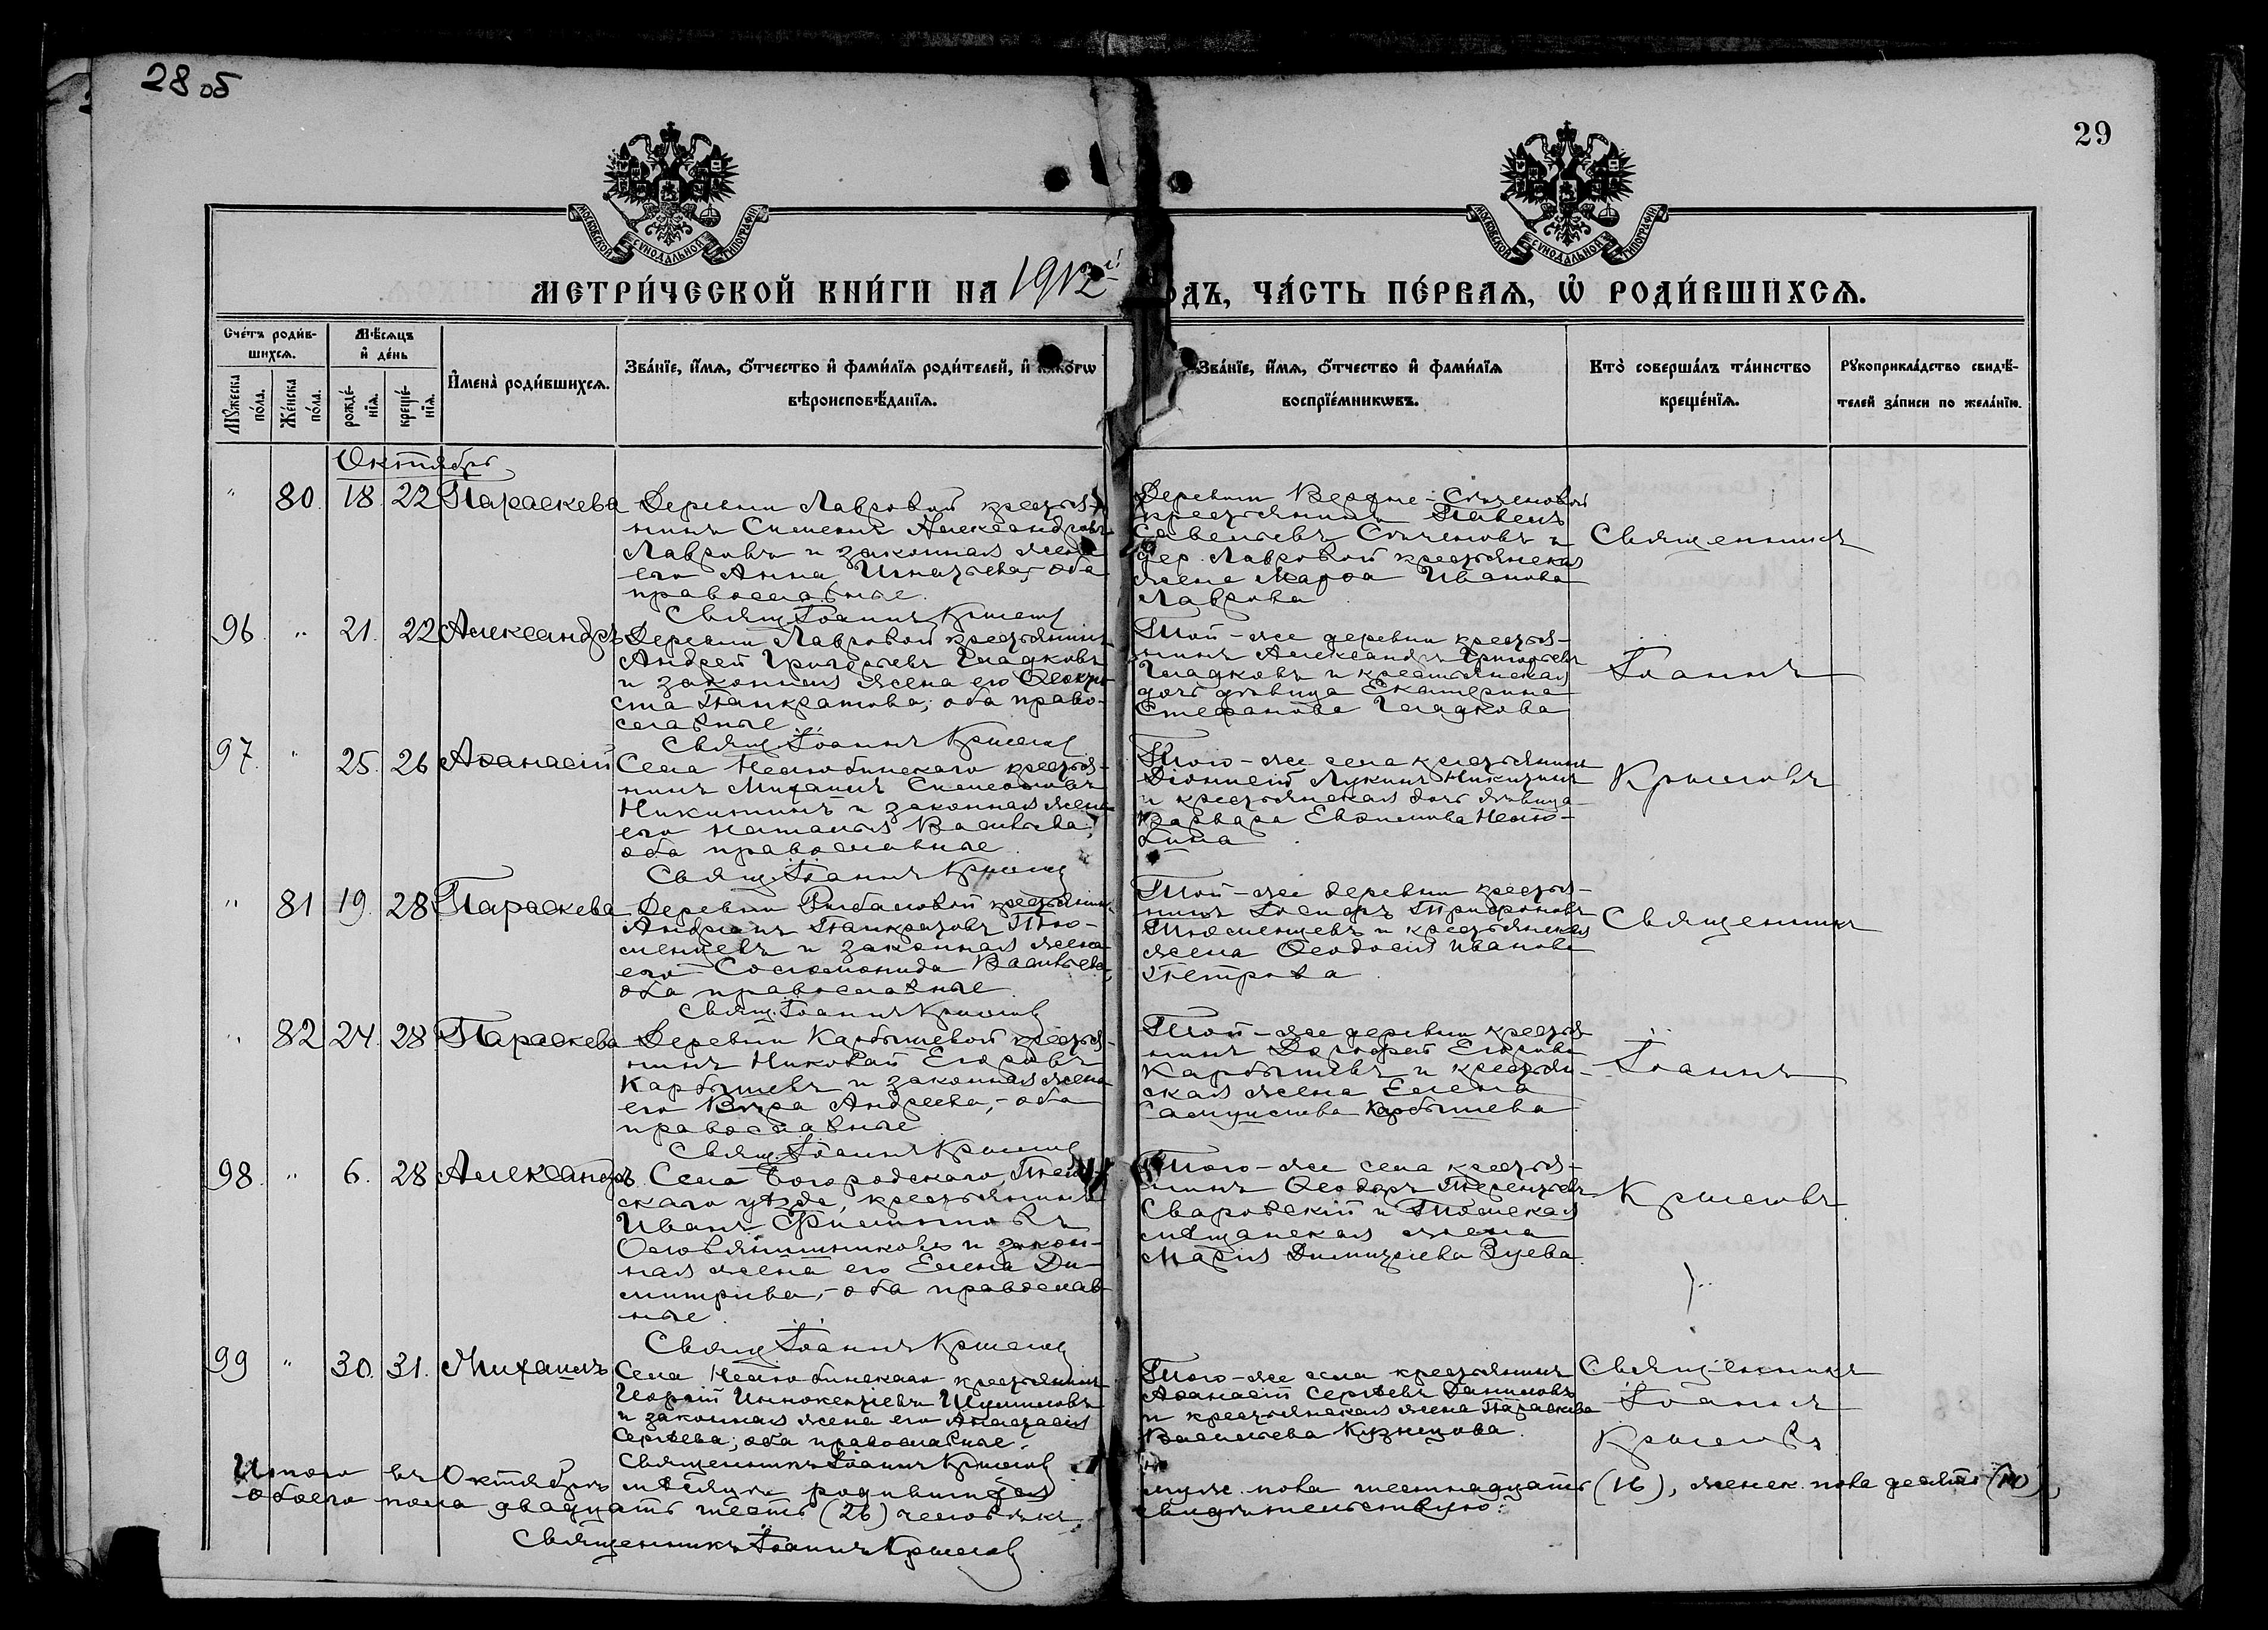 28 об
29
МОСКОВСКОЙ СѴНОДАЛЬНОЙ ТИПОГРАФІИ
МОСКОВСКОЙ СѴНОДАЛЬНОЙ ТИПОГРАФІИ
МЕТРИ́ЧЕСКОЙ КНИ́ГИ НА 1912 й
ОДЪ, ЧА́СТЬ ПЕ́РВАѦ, Ѡ҆ РОДИ́ВШИХСѦ.
Сче́тъ роди́в-
шихсѧ.
Мѣ́сѧцъ
и҆ де́нь
Мꙋ́жеска по́ла.
Же́нска по́ла.
рожде́-
нїѧ.
креще́-
нїѧ.
И҆мена̀ роди́вшихсѧ.
Зва́нїе, и҆́мѧ, ѻ҆́тчество и҆ фами́лїѧ роди́телей, и҆ како́гѡ
вѣроисповѣ́данїѧ.
Зва́нїе, и҆́мѧ, ѻ҆́тчество и҆ фами́лїѧ
воспрїе́мникѡвъ.
Кто̀ соверша́лъ та́инство
креще́нїѧ.
Рꙋкоприкла́дство свидѣ́-
телей за́писи по жела́нїю.
Октябрь
" 80. 18. 22 Параскева
Деревни Лавровой крестья-
нинъ Симеонъ Александровъ
Лавровъ и законная жена
его Анна Игнатьева, оба
православные.
Свящ. Іоаннъ Крылов
Деревни Верхне-Сѣченовой
крестьянинъ Павелъ
Савельевъ Сѣченовъ и
дер. Лавровой крестьянская
жена Марѳа Иванова
Лаврова
Священникъ
96. " 21. 22 Александръ
Деревни Лавровой крестьянинъ
Андрей Григорьевъ Гладковъ
и законная жена его Ѳеокти-
ста Панкратова; оба право-
славные.
Свящ. Іоаннъ Крылов
Той-же деревни крестья-
нинъ Александръ Григорьевъ
Гладковъ и крестьянская
дочь дѣвица Екатерина
Стефанова Гладкова
Іоаннъ
97. " 25. 26 Аѳанасій
Села Нелюбинскаго крестья-
нинъ Михаилъ
Никитинъ и законная жена
его Наталья Васильева;
оба православные.
Свящ. Іоаннъ Крылов
Того-же села крестьянинъ
Діонисій Лукинъ Никитинъ
и крестьянская дочь дѣвица
Варвара Евѳимова Нелю-
бина.
Крыловъ
" 81 19. 28 Параскева
Деревни Рыбаловой крестьянинъ
Андріанъ Панкратовъ Тю-
менцевъ и законная жена
его Соломонида Васильева,
оба православные.
Свящ. Іоаннъ Крылов
Той-же деревни крестья-
нинъ Іосифъ Трифоновъ
Тюменцевъ и крестьянская
жена Ѳеодосія Иванова
Петрова.
Священникъ
" 82 24. 28 Параскева
Деревни Карбышевой крестья-
нинъ Николай Егоровъ
Карбышевъ и законная жена
его Вѣра Андреева, - оба
православные
Свящ. Іоаннъ Крылов
Той-же деревни крестья-
нинъ Дорофей Егоровъ
Карбышевъ и крестьян-
ская жена Елена
Карбышева
Іоаннъ
98. " 6. 28 Александръ
Села Богородскаго, Том-
скаго уѣзда, крестьянинъ
Иванъ Филипповъ
и закон-
ная жена его Елена Ди-
митріева, - оба православ-
ные.
Свящ. Іоаннъ Крылов
Того-же села крестья-
нинъ Ѳеодоръ Терентьевъ
Сваровскій и Томская
мѣщанская жена
Марія Димитріева Зуева.
Крыловъ
99 " 30. 31. Михаилъ
Села Нелюбинскаго крестьянинъ
Иннокентіевъ Шумиловъ
и законная жена его Анастасія
Сергѣева; оба православные.
Священникъ Іоаннъ Крылов
Того-же села крестьянинъ
Аѳанасій Сергѣевъ Даниловъ
и крестьянская жена Параскева
Васильева Кузнецова.
Священникъ
Іоаннъ
Крыловъ
Итого въ Октябрѣ мѣсяцѣ родившихся муж. пола шестнадцать (16), женск. пола десять (10),
обоего пола двадцать шесть (26) человѣкъ свидѣтельствую:
Священникъ Іоаннъ Крылов